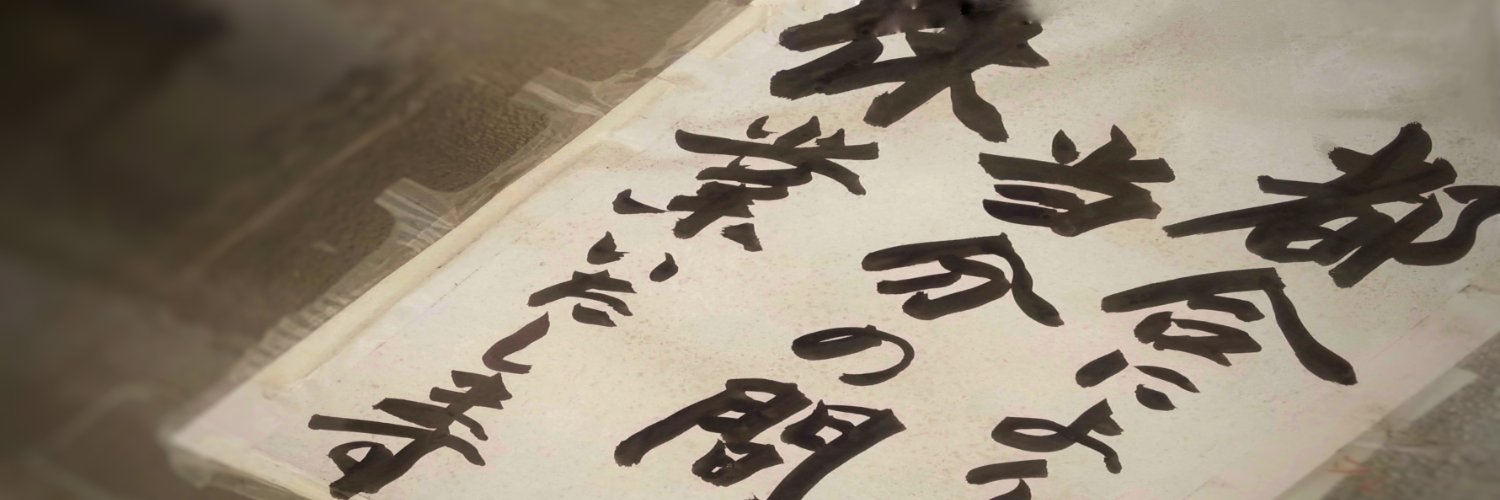 都合により
当分の間
休業いたしま